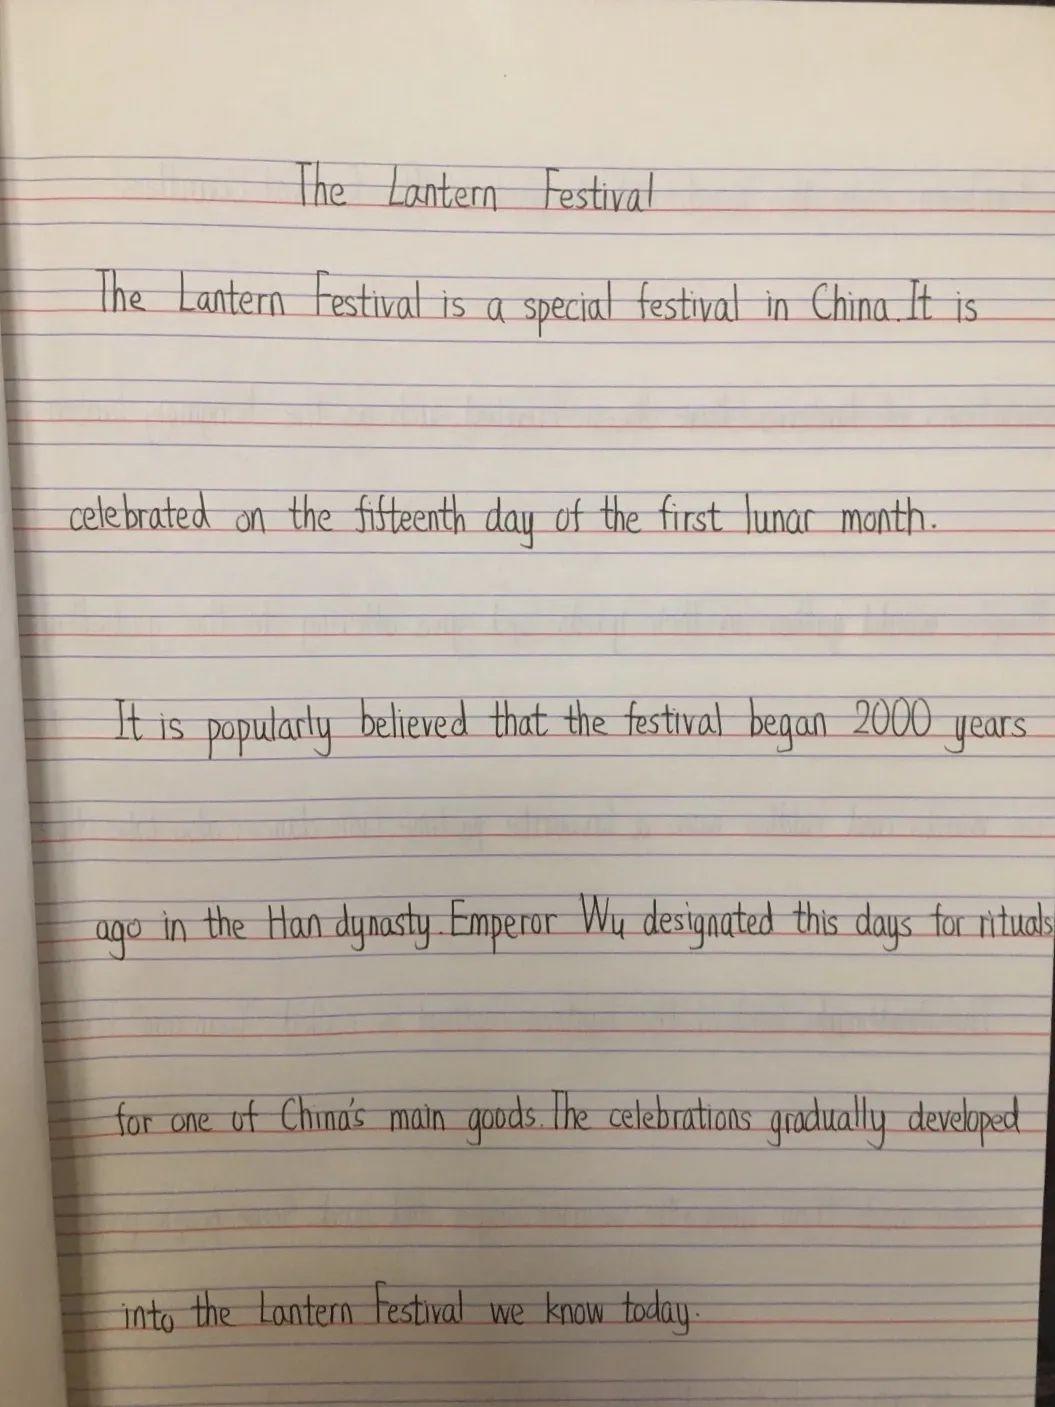 The Lantern Festival
The Lantern Festival is a special festival in China. It is
celebrated on the fifteenth day of the first lunar month.
It is popularly believed that the festival began 2000 years
ago in the Han dynasty. Emperor Wu designated this days for rituals
for one of China's main goods. The celebrations gradually developed
into the Lantern Festival we know today.